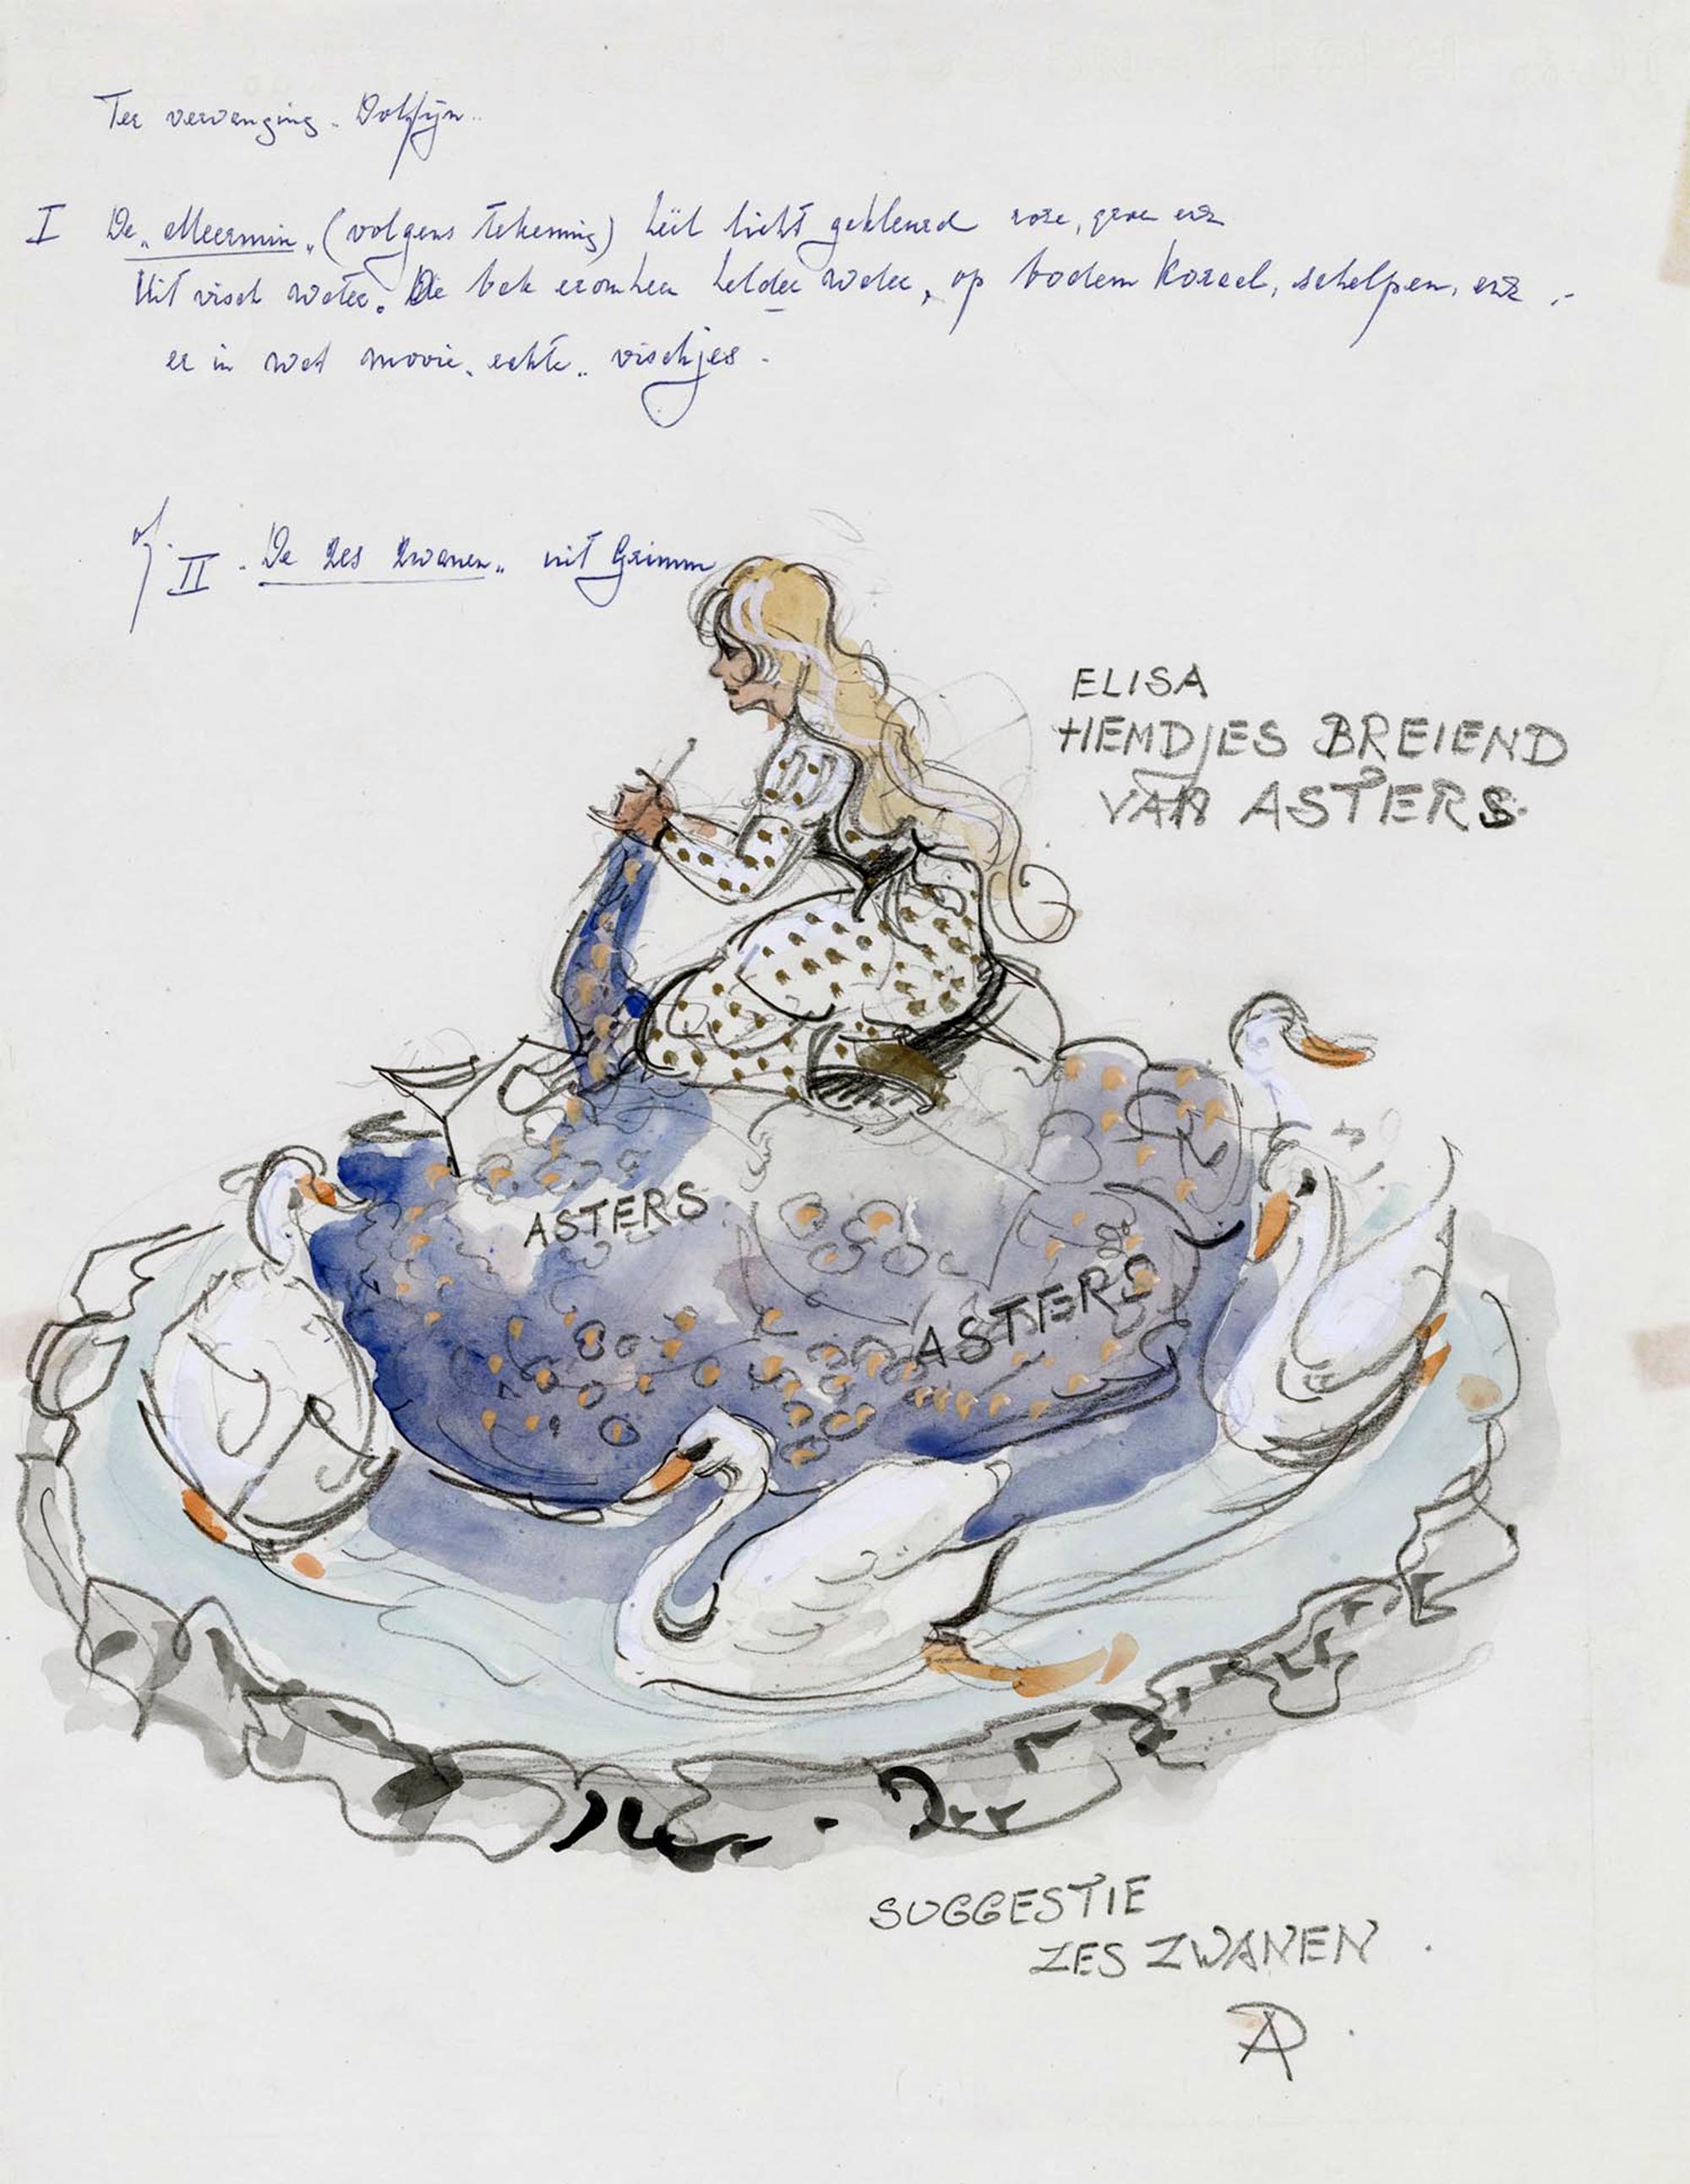 Ter vervanging. Dolfijn..
I De „Meermin„ (volgens tekening) licht gekleurd rose, groen enz
Uit visch water. De bak eromheen helder water, op bodem Koraal, schelpen, enz.-
er in wat mooie „echte„ vischjes.
of. II. De Zes Zwanen„ uit Grimm
ELISA
HEMDJES BREIEND
VAN ASTERS.
ASTERS
ASTERS
SUGGESTIE
ZES ZWANEN.
AP.